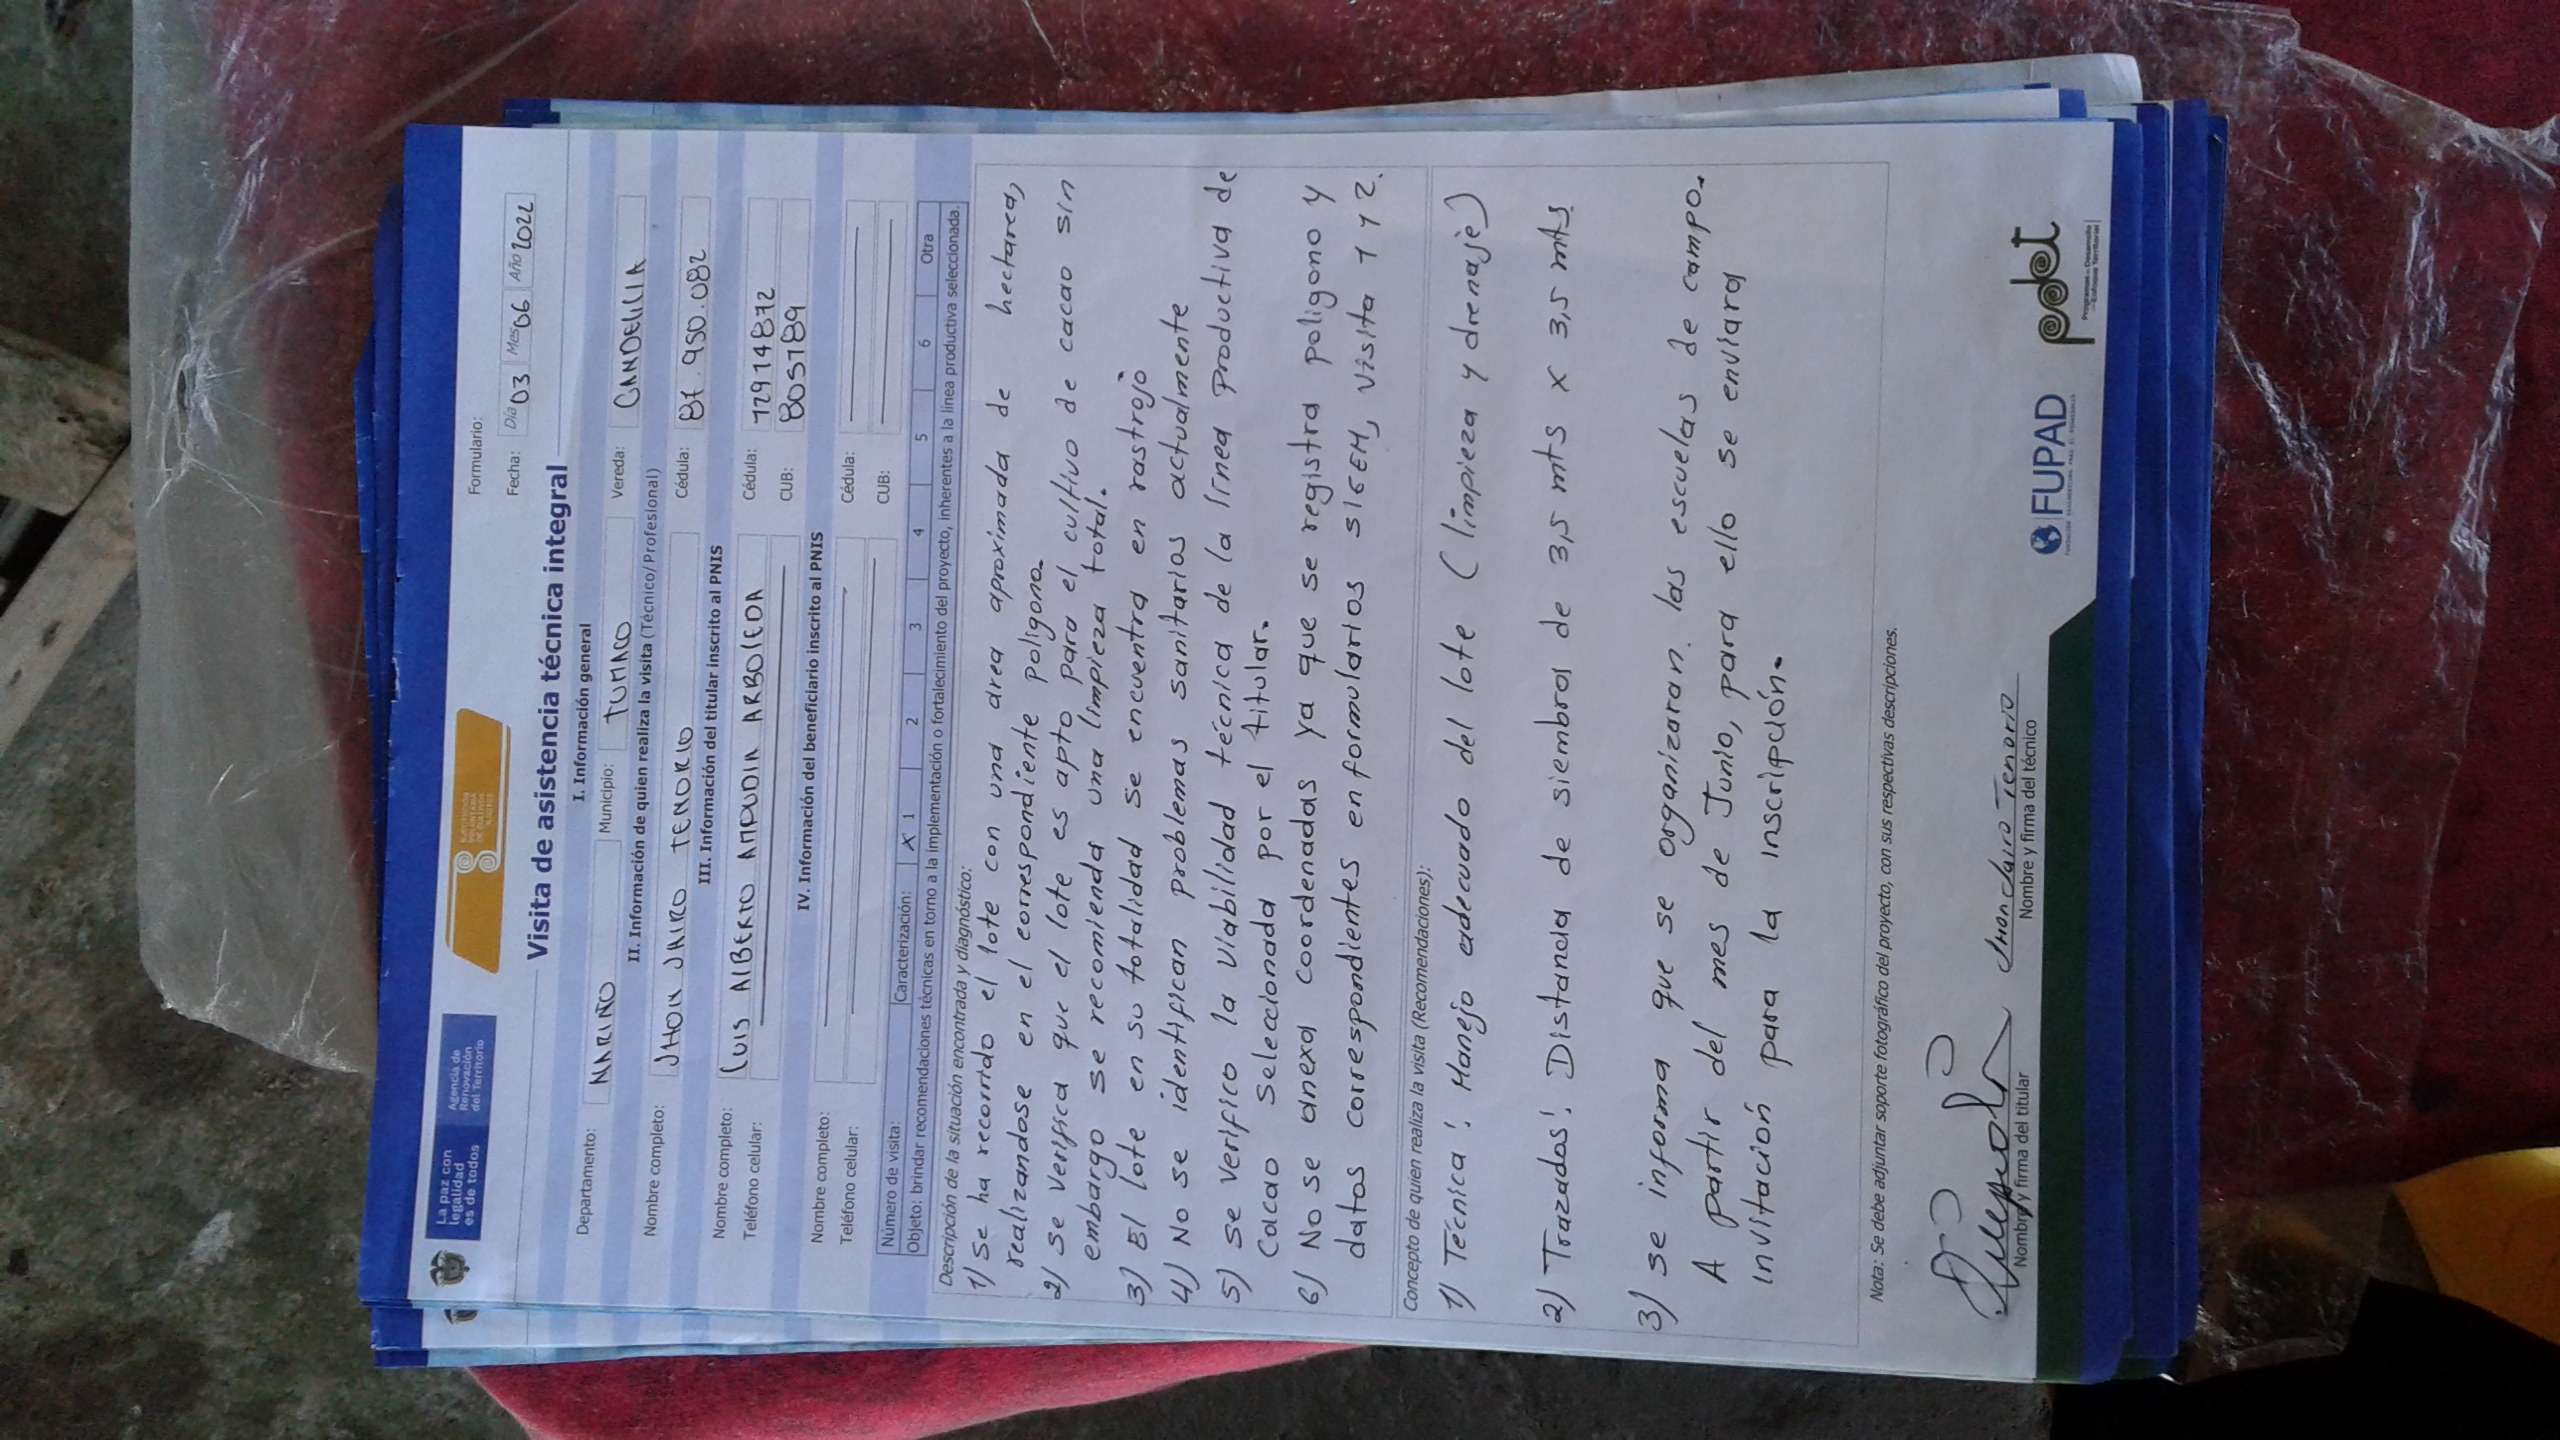 La paz con
legalidad
es de todos
Agencia de
Renovación
del Territorio
SUSTITUCIÓN
VOLUNTARIA
DE CULTIVOS
ILÍCITOS
Formulario:
Fecha: Día 03 Mes 06 Año 2022
Visita de asistencia técnica integral
I. Información general
Departamento: NARIÑO Municipio: TUMACO Vereda: CANDELILLA
II. Información de quien realiza la visita (Técnico/Profesional)
Nombre completo: JHON JAIRO TENORIO Cédula: 87.950.082
III. Información del titular inscrito al PNIS
Nombre completo: LUIS ALBERTO AMPUDIA ARBOLEDA Cédula: 12914872
Teléfono celular: CUB: 805789
IV. Información del beneficiario inscrito al PNIS
Nombre completo: Cédula:
Teléfono celular: CUB:
Número de visita: Caracterización: X 1 2 3 4 5 6 Otra
Objeto: brindar recomendaciones técnicas en torno a la implementación o fortalecimiento del proyecto, inherentes a la línea productiva seleccionada.
Descripción de la situación encontrada y diagnóstico:
1) Se ha recorrido el lote con una área aproximada de hectarea,
realizandose en el correspondiente poligono.
2) Se verifica que el lote es apto para el cultivo de cacao sin
embargo se recomienda una limpieza total.
3) El lote en su totalidad se encuentra en rastrojo
4) No se identifican problemas sanitarios actualmente
5) Se verifico la viabilidad técnica de la línea productiva de
Cacao Seleccionada por el titular.
6) No se anexa coordenadas ya que se registra poligono y
datos correspondientes en formularios SIGEM, visita 1 y 2.
Concepto de quien realiza la visita (Recomendaciones):
1) Técnica: Manejo adecuado del lote (limpieza y drenaje)
2) Trazados: Distancia de siembra de 3,5 mts x 3,5 mts
3) Se informa que se organizaran las escuelas de campo.
A partir del mes de Junio, para ello se enviara
Invitación para la inscripción.
Nota: Se debe adjuntar soporte fotográfico del proyecto, con sus respectivas descripciones.
Jhon Jairo Tenorio
Nombre y firma del titular Nombre y firma del técnico
FUPAD
pdet
Programas de Desarrollo
con Enfoque Territorial